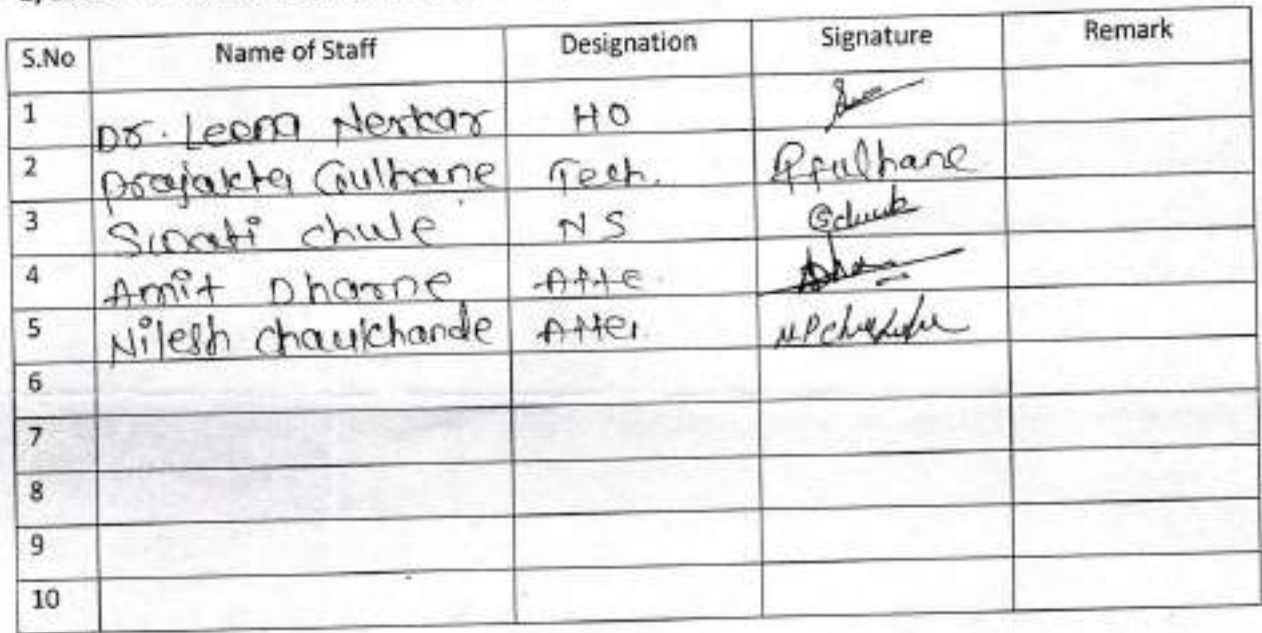 S.No Name of Staff Designation Signature Remark
1 Dr. Leena Nerkar HO
2 Prajakta Gulhane Tech. Pgulhane
3 Swati chule NS
4 Amit Dharne Atte.
5 Nilesh chaukhande Atter.
6
7
8
9
10